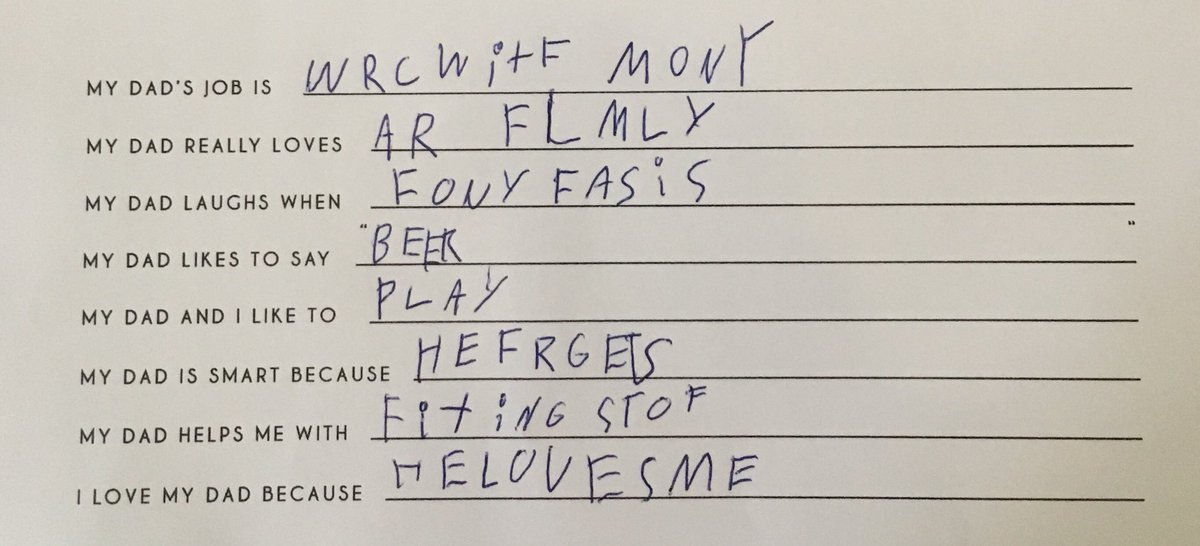 MY DAD'S JOB IS WRC WiTF MONY
MY DAD REALLY LOVES AR FLMLY
MY DAD LAUGHS WHEN FONY FASiS
MY DAD LIKES TO SAY "BEER"
MY DAD AND I LIKE TO PLAY
MY DAD IS SMART BECAUSE HE FRGETS
MY DAD HELPS ME WITH FiTiNG STOF
I LOVE MY DAD BECAUSE HE LOVES ME